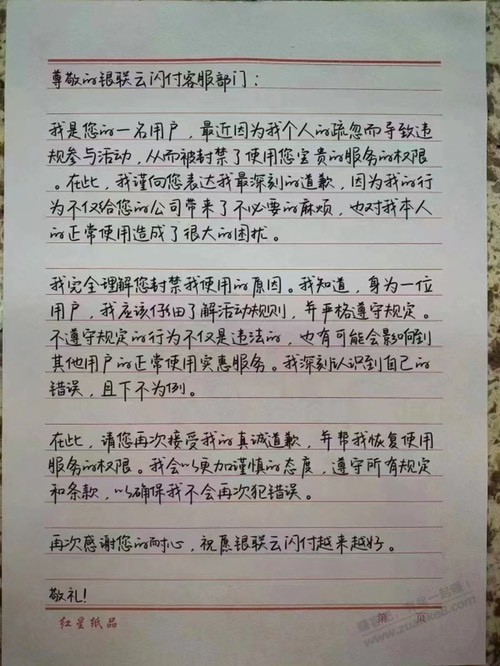 尊敬的银联云闪付客服部门：
我是您的一名用户，最近因为我个人的疏忽而导致违
规参与活动，从而被封禁了使用您宝贵的服务的权限
。在此，我谨向您表达我最深刻的道歉，因为我的行
为不仅给您的公司带来了不必要的麻烦，也对我本人
的正常使用造成了很大的困扰。
我完全理解您封禁我使用的原因。我知道，身为一位
用户，我应该仔细了解活动规则，并严格遵守规定。
不遵守规定的行为不仅是违法的，也有可能会影响到
其他用户的正常使用实惠服务。我深刻认识到自己的
错误，且下不为例。
在此，请您再次接受我的真诚道歉，并帮我恢复使用
服务的权限。我会以更加谨慎的态度，遵守所有规定
和条款，以确保我不会再次犯错误。
再次感谢您的耐心，祝愿银联云闪付越来越好。
敬礼！
红星纸品 第 页